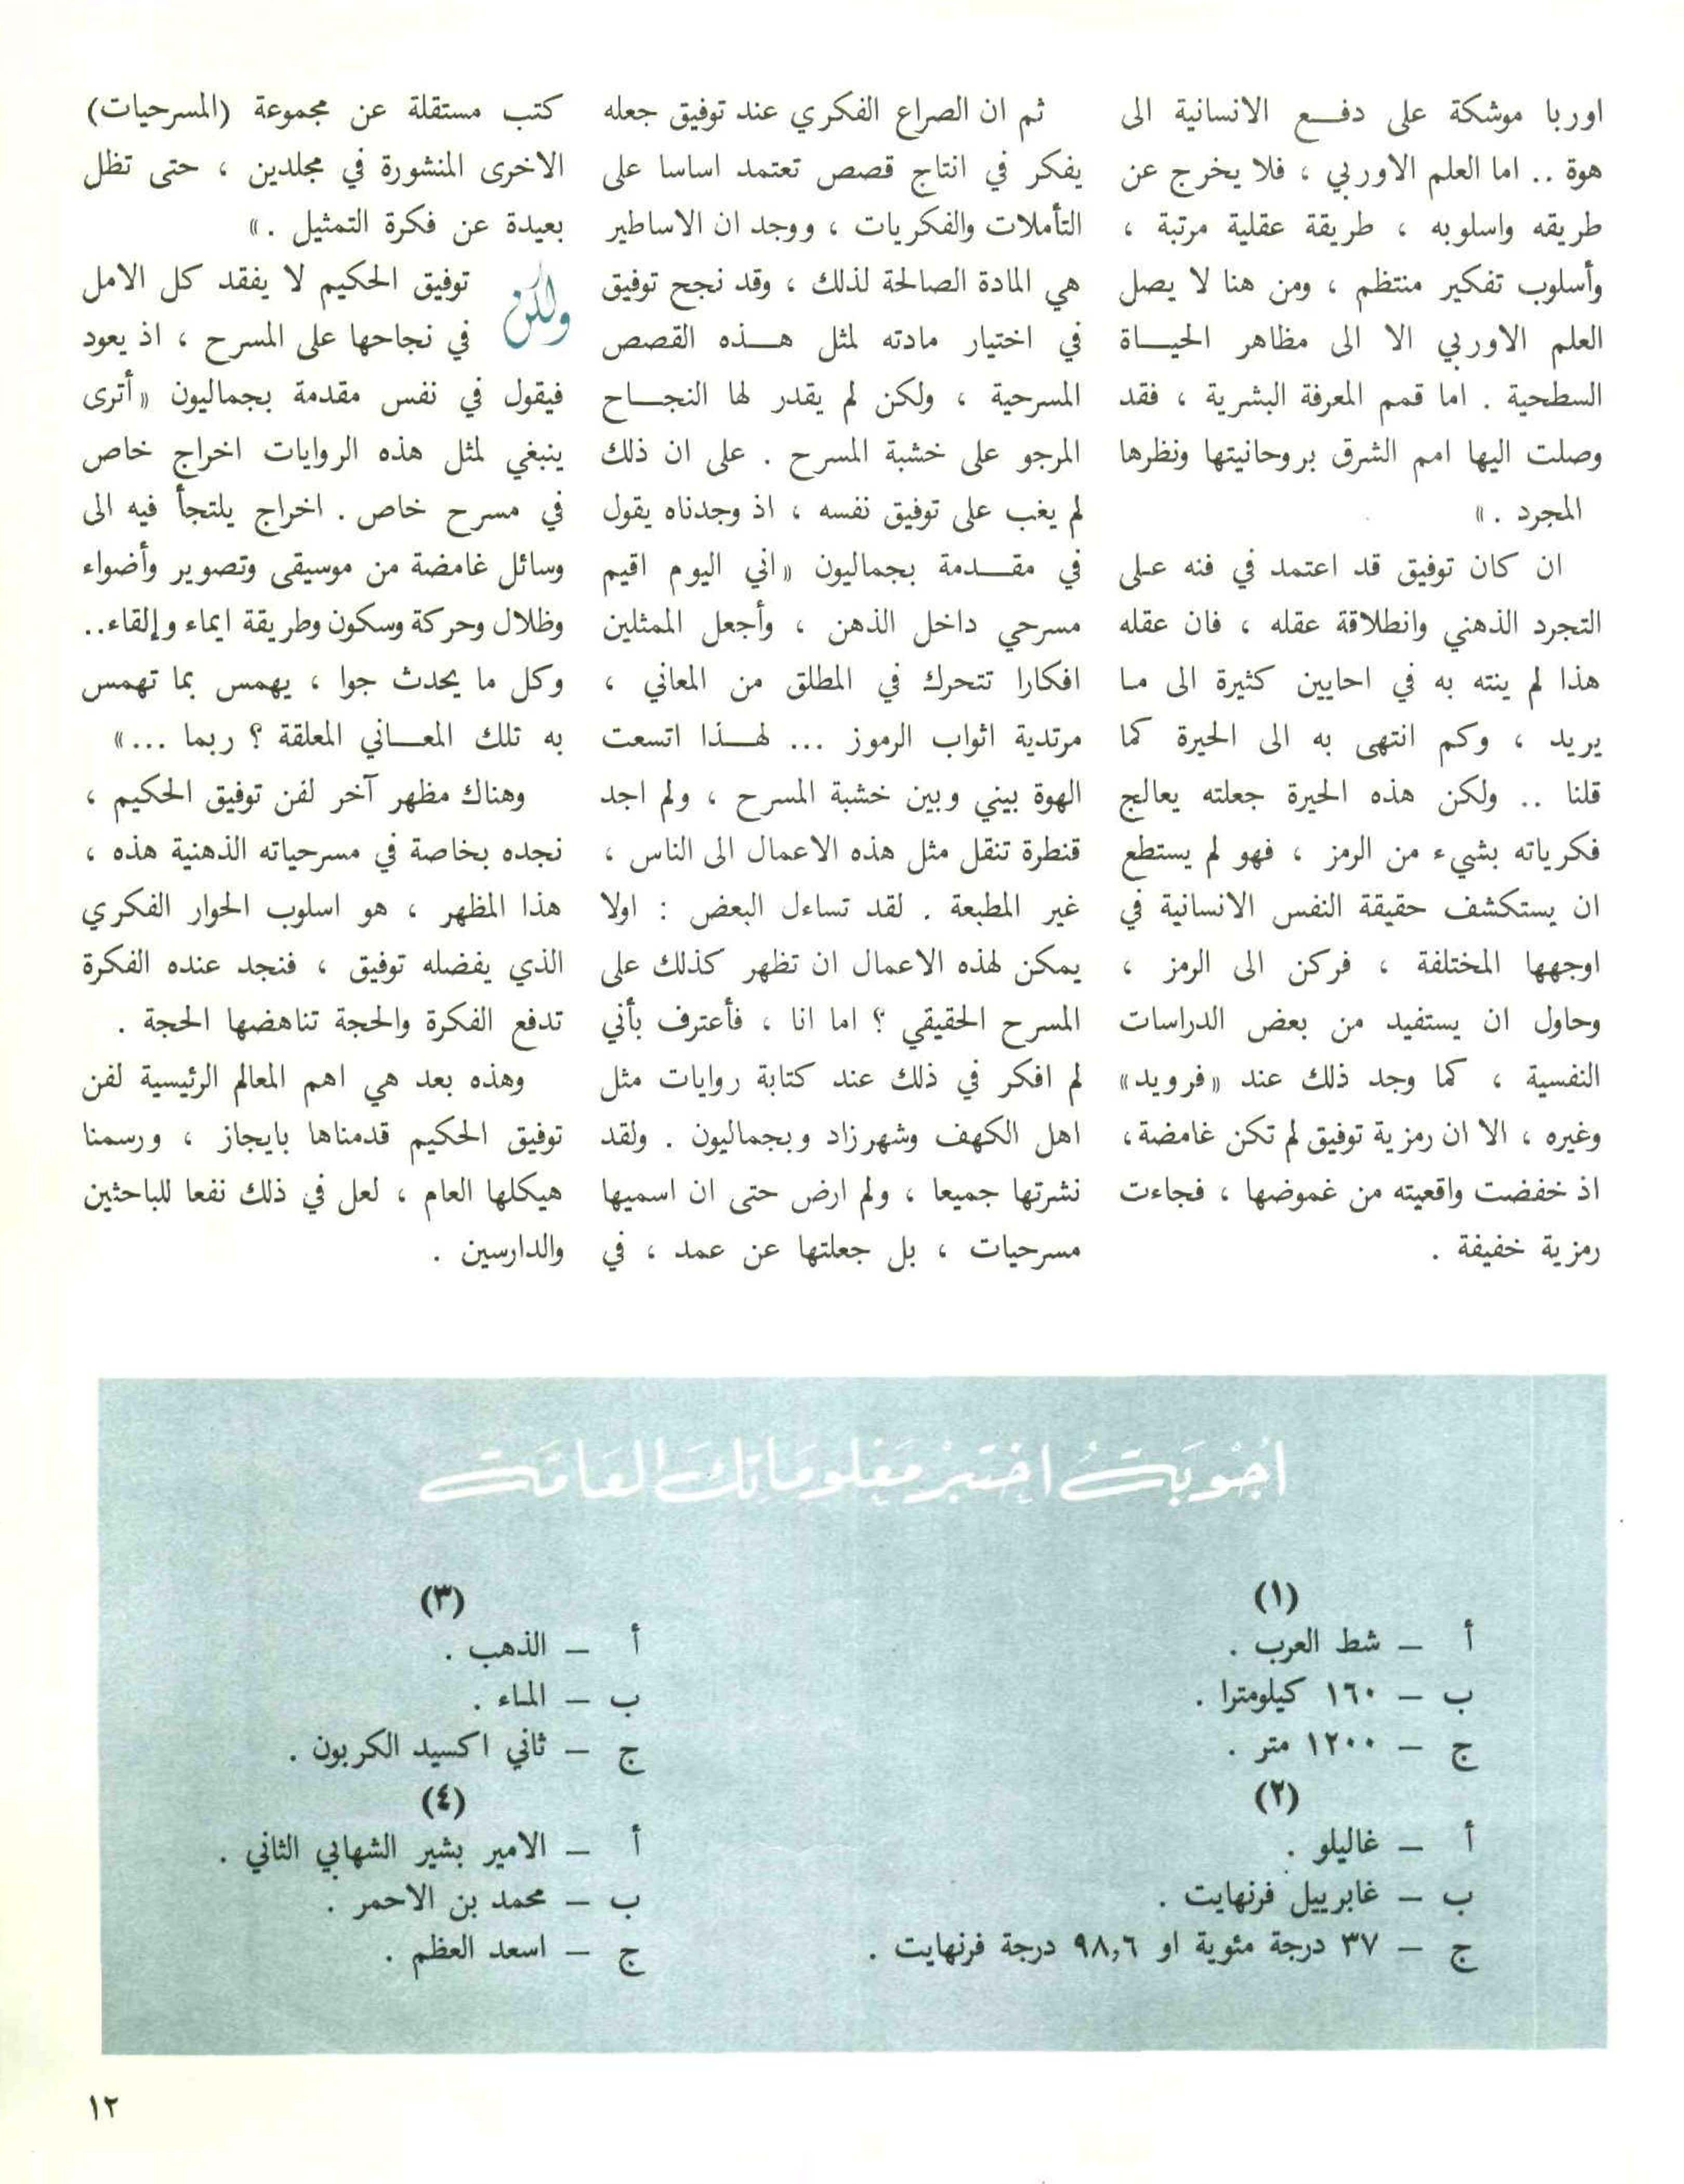 اوربا موشكة على دفـــع الانسانية الى
هوة .. اما العلم الاوربي ، فلا يخرج عن
طريقه واسلوبه ، طريقة عقلية مرتبة ،
وأسلوب تفكير منتظم ، ومن هنا لا يصل
العلم الاوربي الا الى مظاهر الحيـــاة
السطحية . اما قمم المعرفة البشرية ، فقد
وصلت اليها امم الشرق بروحانيتها ونظرها
المجرد . »
ان كان توفيق قد اعتمد في فنه على
التجرد الذهني وانطلاقة عقله ، فان عقله
هذا لم ينته به في احايين كثيرة الى ما
يريد ، وكم انتهى به الى الحيرة كما
قلنا .. ولكن هذه الحيرة جعلته يعالج
فكرياته بشيء من الرمز ، فهو لم يستطع
ان يستكشف حقيقة النفس الانسانية في
اوجهها المختلفة ، فركن الى الرمز ،
وحاول ان يستفيد من بعض الدراسات
النفسية ، كما وجد ذلك عند «فرويد»
وغيره ، الا ان رمزية توفيق لم تكن غامضة،
اذ خفضت واقعيته من غموضها ، فجاءت
رمزية خفيفة .
ثم ان الصراع الفكري عند توفيق جعله
يفكر في انتاج قصص تعتمد اساسا على
التأملات والفكريات ، ووجد ان الاساطير
هي المادة الصالحة لذلك ، وقد نجح توفيق
في اختيار مادته لمثل هـــذه القصص
المسرحية ، ولكن لم يقدر لها النجـــاح
المرجو على خشبة المسرح . على ان ذلك
لم يغب على توفيق نفسه ، اذ وجدناه يقول
في مقـــدمة بجماليون «اني اليوم اقيم
مسرحي داخل الذهن ، وأجعل الممثلين
افكارا تتحرك في المطلق من المعاني ،
مرتدية اثواب الرموز ... لهـــذا اتسعت
الهوة بيني وبين خشبة المسرح ، ولم اجد
قنطرة تنقل مثل هذه الاعمال الى الناس ،
غير المطبعة . لقد تساءل البعض : اولا
يمكن لهذه الاعمال ان تظهر كذلك على
المسرح الحقيقي ؟ اما انا ، فأعترف بأني
لم افكر في ذلك عند كتابة روايات مثل
اهل الكهف وشهرزاد وبجماليون . ولقد
نشرتها جميعا ، ولم ارض حتى ان اسميها
مسرحيات ، بل جعلتها عن عمد ، في
كتب مستقلة عن مجموعة (المسرحيات)
الاخرى المنشورة في مجلدين ، حتى تظل
بعيدة عن فكرة التمثيل . »
ولكن توفيق الحكيم لا يفقد كل الامل
في نجاحها على المسرح ، اذ يعود
فيقول في نفس مقدمة بجماليون «أترى
ينبغي لمثل هذه الروايات اخراج خاص
في مسرح خاص . اخراج يلتجأ فيه الى
وسائل غامضة من موسيقى وتصوير وأضواء
وظلال وحركة وسكون وطريقة ايماء وإلقاء..
وكل ما يحدث جوا ، يهمس بما تهمس
به تلك المعـــاني المعلقة ؟ ربما ...»
وهناك مظهر آخر لفن توفيق الحكيم ،
نجده بخاصة في مسرحياته الذهنية هذه ،
هذا المظهر ، هو اسلوب الحوار الفكري
الذي يفضله توفيق ، فنجد عنده الفكرة
تدفع الفكرة والحجة تناهضها الحجة .
وهذه بعد هي اهم المعالم الرئيسية لفن
توفيق الحكيم قدمناها بايجاز ، ورسمنا
هيكلها العام ، لعل في ذلك نفعا للباحثين
والدارسين .
اجوبة اختبر معلوماتك العامة
(١)
أ – شط العرب .
ب – ١٦٠ كيلومترا .
ج – ١٢٠٠ متر .
(٢)
أ – غاليلو .
ب – غابرييل فرنهايت .
ج – ٣٧ درجة مئوية او ٩٨,٦ درجة فرنهايت .
(٣)
أ – الذهب .
ب – الماء .
ج – ثاني اكسيد الكربون .
(٤)
أ – الامير بشير الشهابي الثاني .
ب – محمد بن الاحمر .
ج – اسعد العظم .
١٢